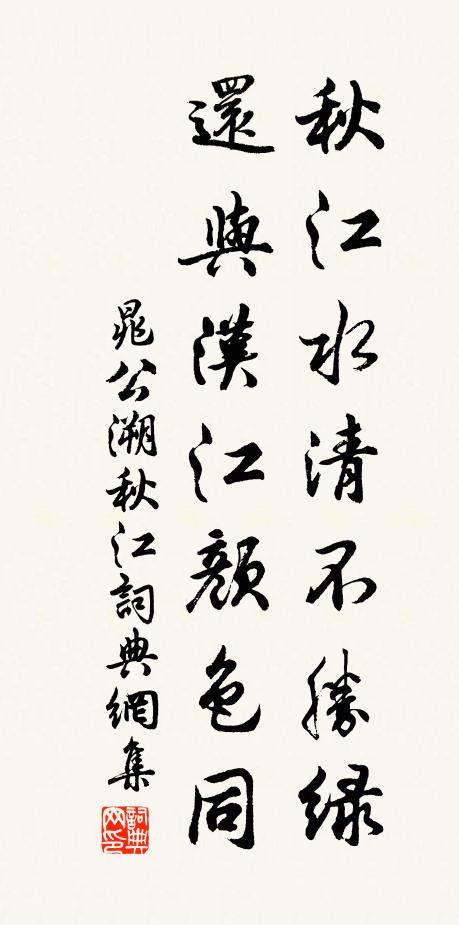 秋江水清不勝緑
還與漢江顏色同
晁公溯秋江詞典網集
詞典网印